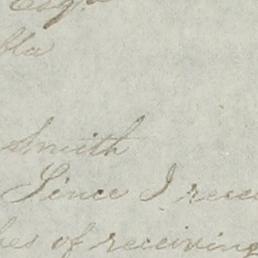 Esqr.
bla
Smith
Since I rece
hes of receiving